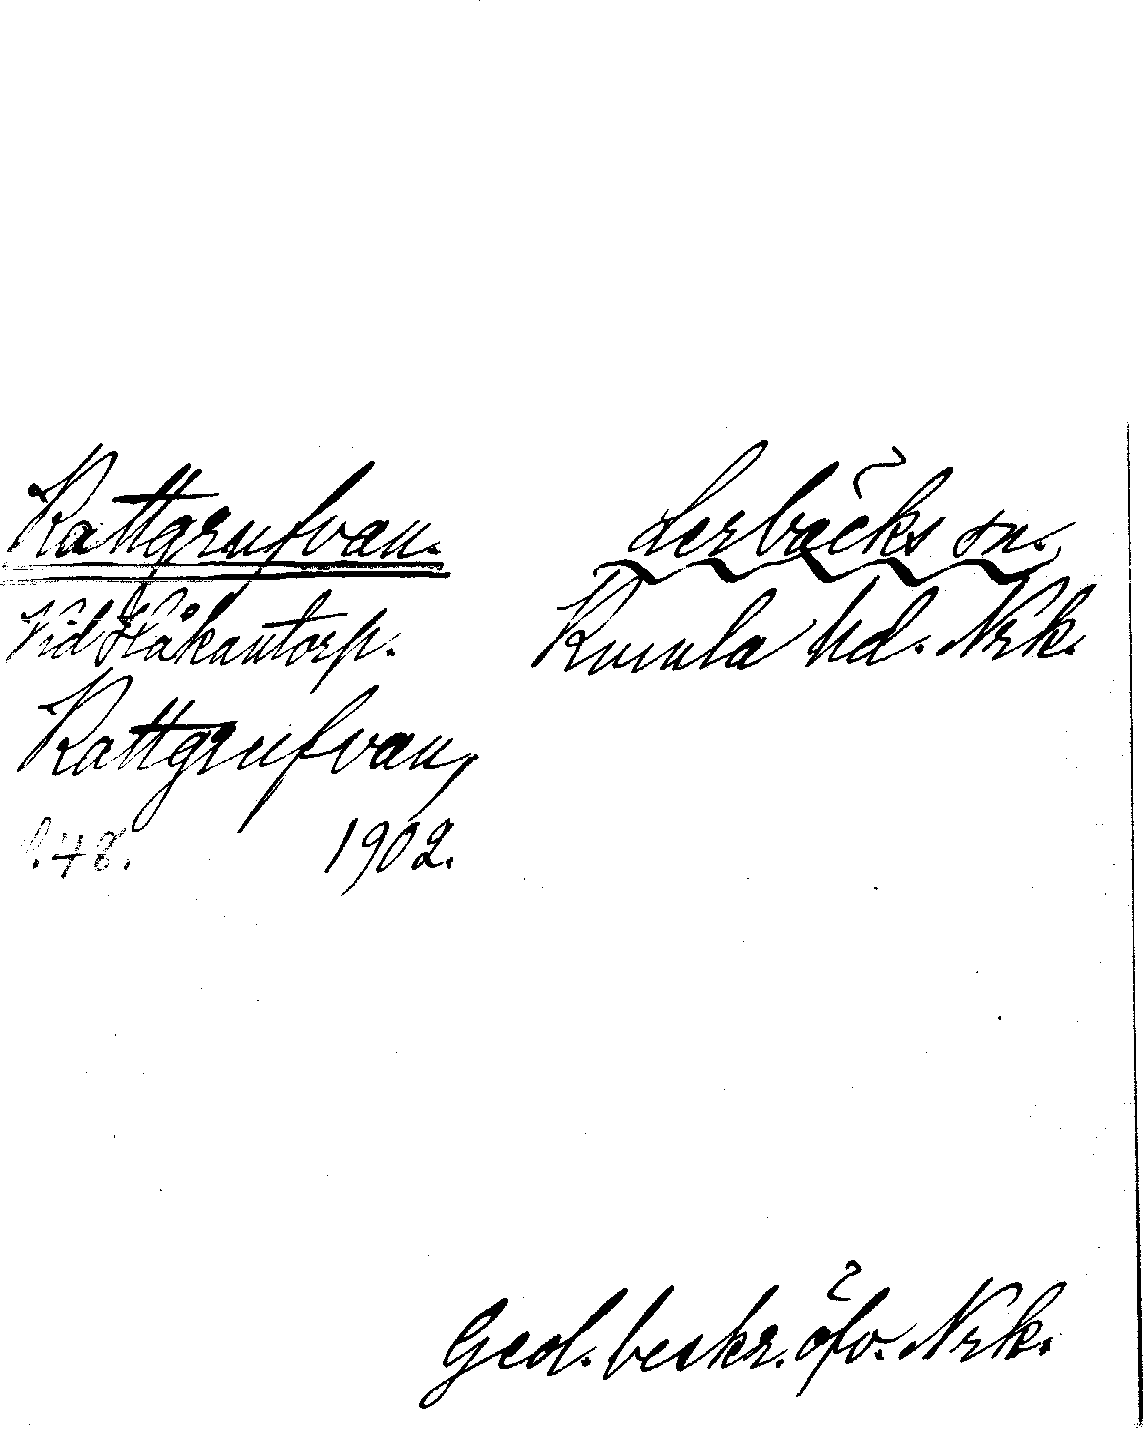 Kattgrufvan.
Lerbäcks sn.
Vid Håkantorp.
Kumla hd. Nrk.
Kattgrufvan,
s. 48. 1902.
Geol. beskr. öfv. Nrk.